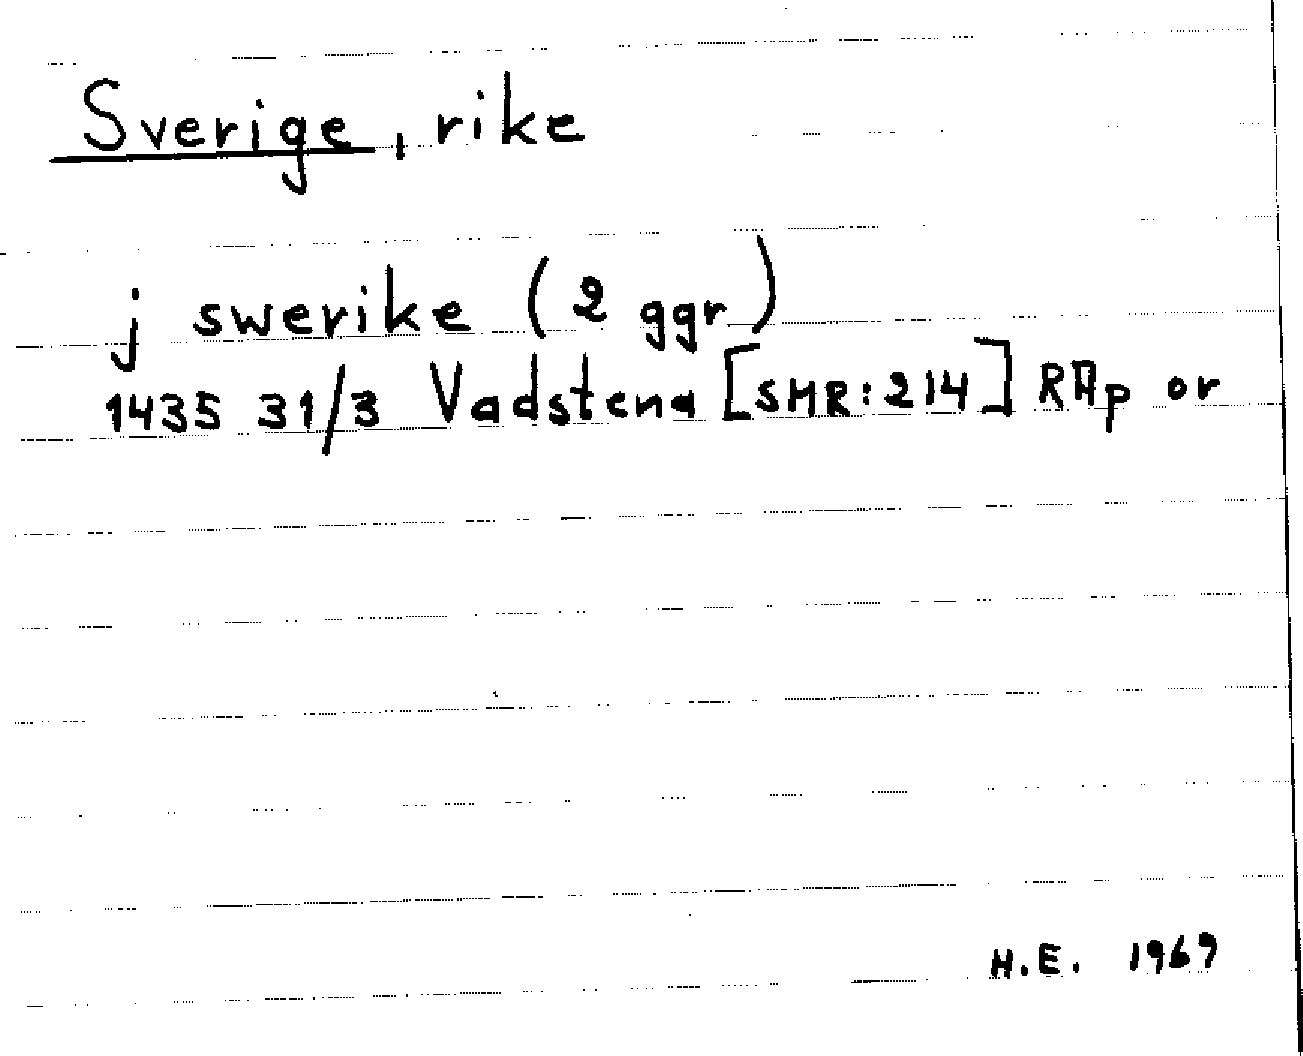 Sverige, rike
j swerike (2 ggr)
1435 31/3 Vadstena [SMR:214] RAp or
H.E. 1969